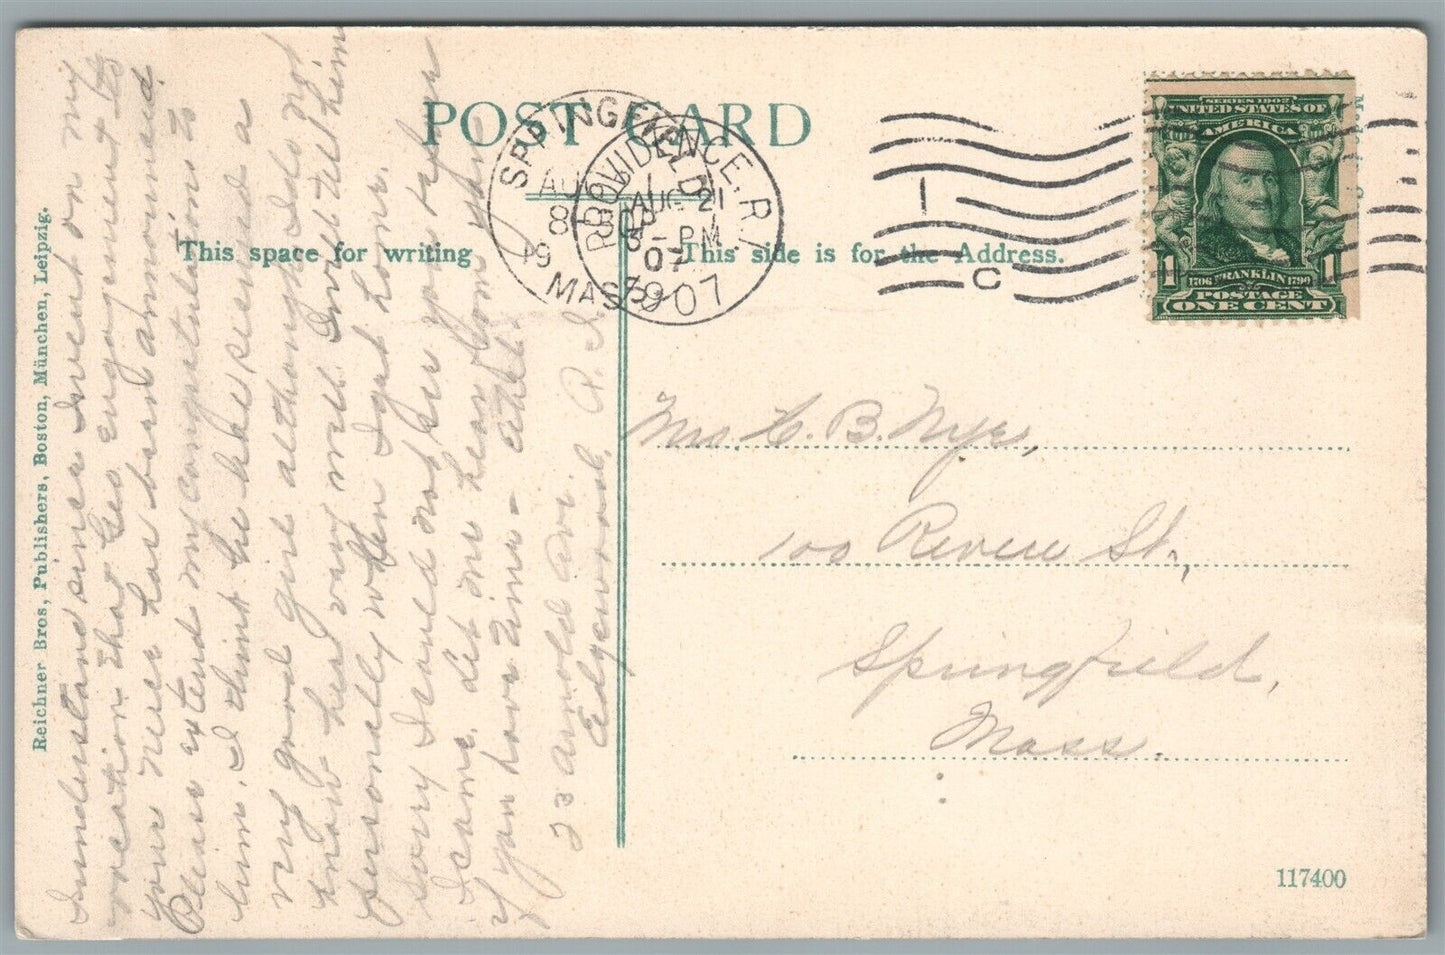 POST CARD
This space for writing
This side is for the Address.
Reichner Bros, Publishers, Boston, München, Leipzig.
SPRINGFIELD
AUG
8 30P
19 07
MASS.
PROVIDENCE, R.I.
AUG 21
8-PM
1907
1
C
SERIES 1902
UNITED STATES OF
AMERICA
1 1
1706 FRANKLIN 1790
POSTAGE
ONE CENT
I understand since I went on my
vacation that Geo engagement to
your niece has been announced.
Please extend my congratulations to
him. I think he has secured a
very good girl although I do not
know her very well. I will tell him
personally when I get home.
Sorry I could not see you when
I came. Let me hear from you
if you have time - Ethel.
23 Arnold Ave.
Edgewood, R. I.
Mrs C. B. Nye,
100 Revere St,
Springfield,
Mass.
117400